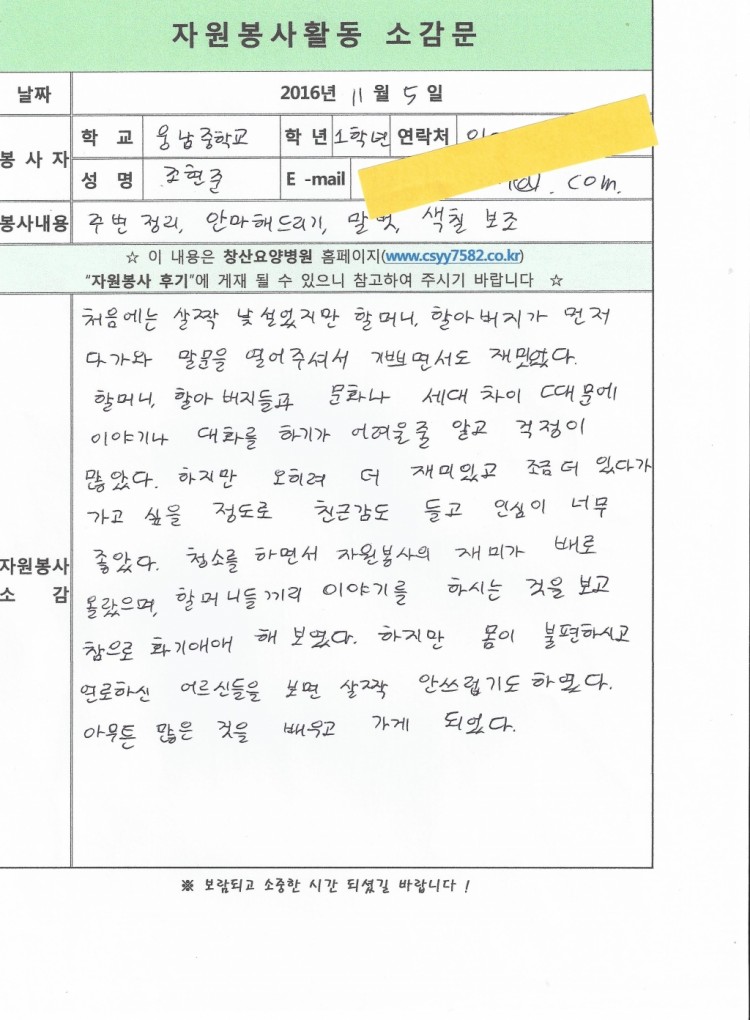 자원봉사활동 소감문
날짜 2016년 11월 5일
봉사자 학교 웅남중학교 학년 1학년 연락처
성명 조현준 E-mail com.
봉사내용 주변 정리, 안마해드리기, 말벗, 색칠 보조
☆ 이 내용은 창산요양병원 홈페이지(www.csyy7582.co.kr)
"자원봉사 후기"에 게재 될 수 있으니 참고하여 주시기 바랍니다 ☆
자원봉사 소감
처음에는 살짝 낯설었지만 할머니, 할아버지가 먼저
다가와 말문을 열어주셔서 기쁘면서도 재밌었다.
할머니, 할아버지들과 문화나 세대 차이 때문에
이야기나 대화를 하기가 어려울줄 알고 걱정이
많았다. 하지만 오히려 더 재미있고 조금 더 있다가
가고 싶을 정도로 친근감도 들고 인심이 너무
좋았다. 청소를 하면서 자원봉사의 재미가 배로
올랐으며, 할머니들끼리 이야기를 하시는 것을 보고
참으로 화기애애 해 보였다. 하지만 몸이 불편하시고
연로하신 어르신들을 보면 살짝 안쓰럽기도 하였다.
아무튼 많은 것을 배우고 가게 되었다.
※ 보람되고 소중한 시간 되셨길 바랍니다 !